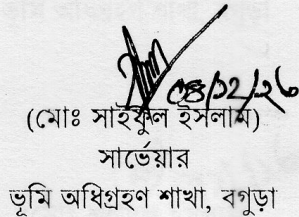 ০৪/১২/২৩
(মোঃ সাইফুল ইসলাম)
সার্ভেয়ার
ভূমি অধিগ্রহণ শাখা, বগুড়া